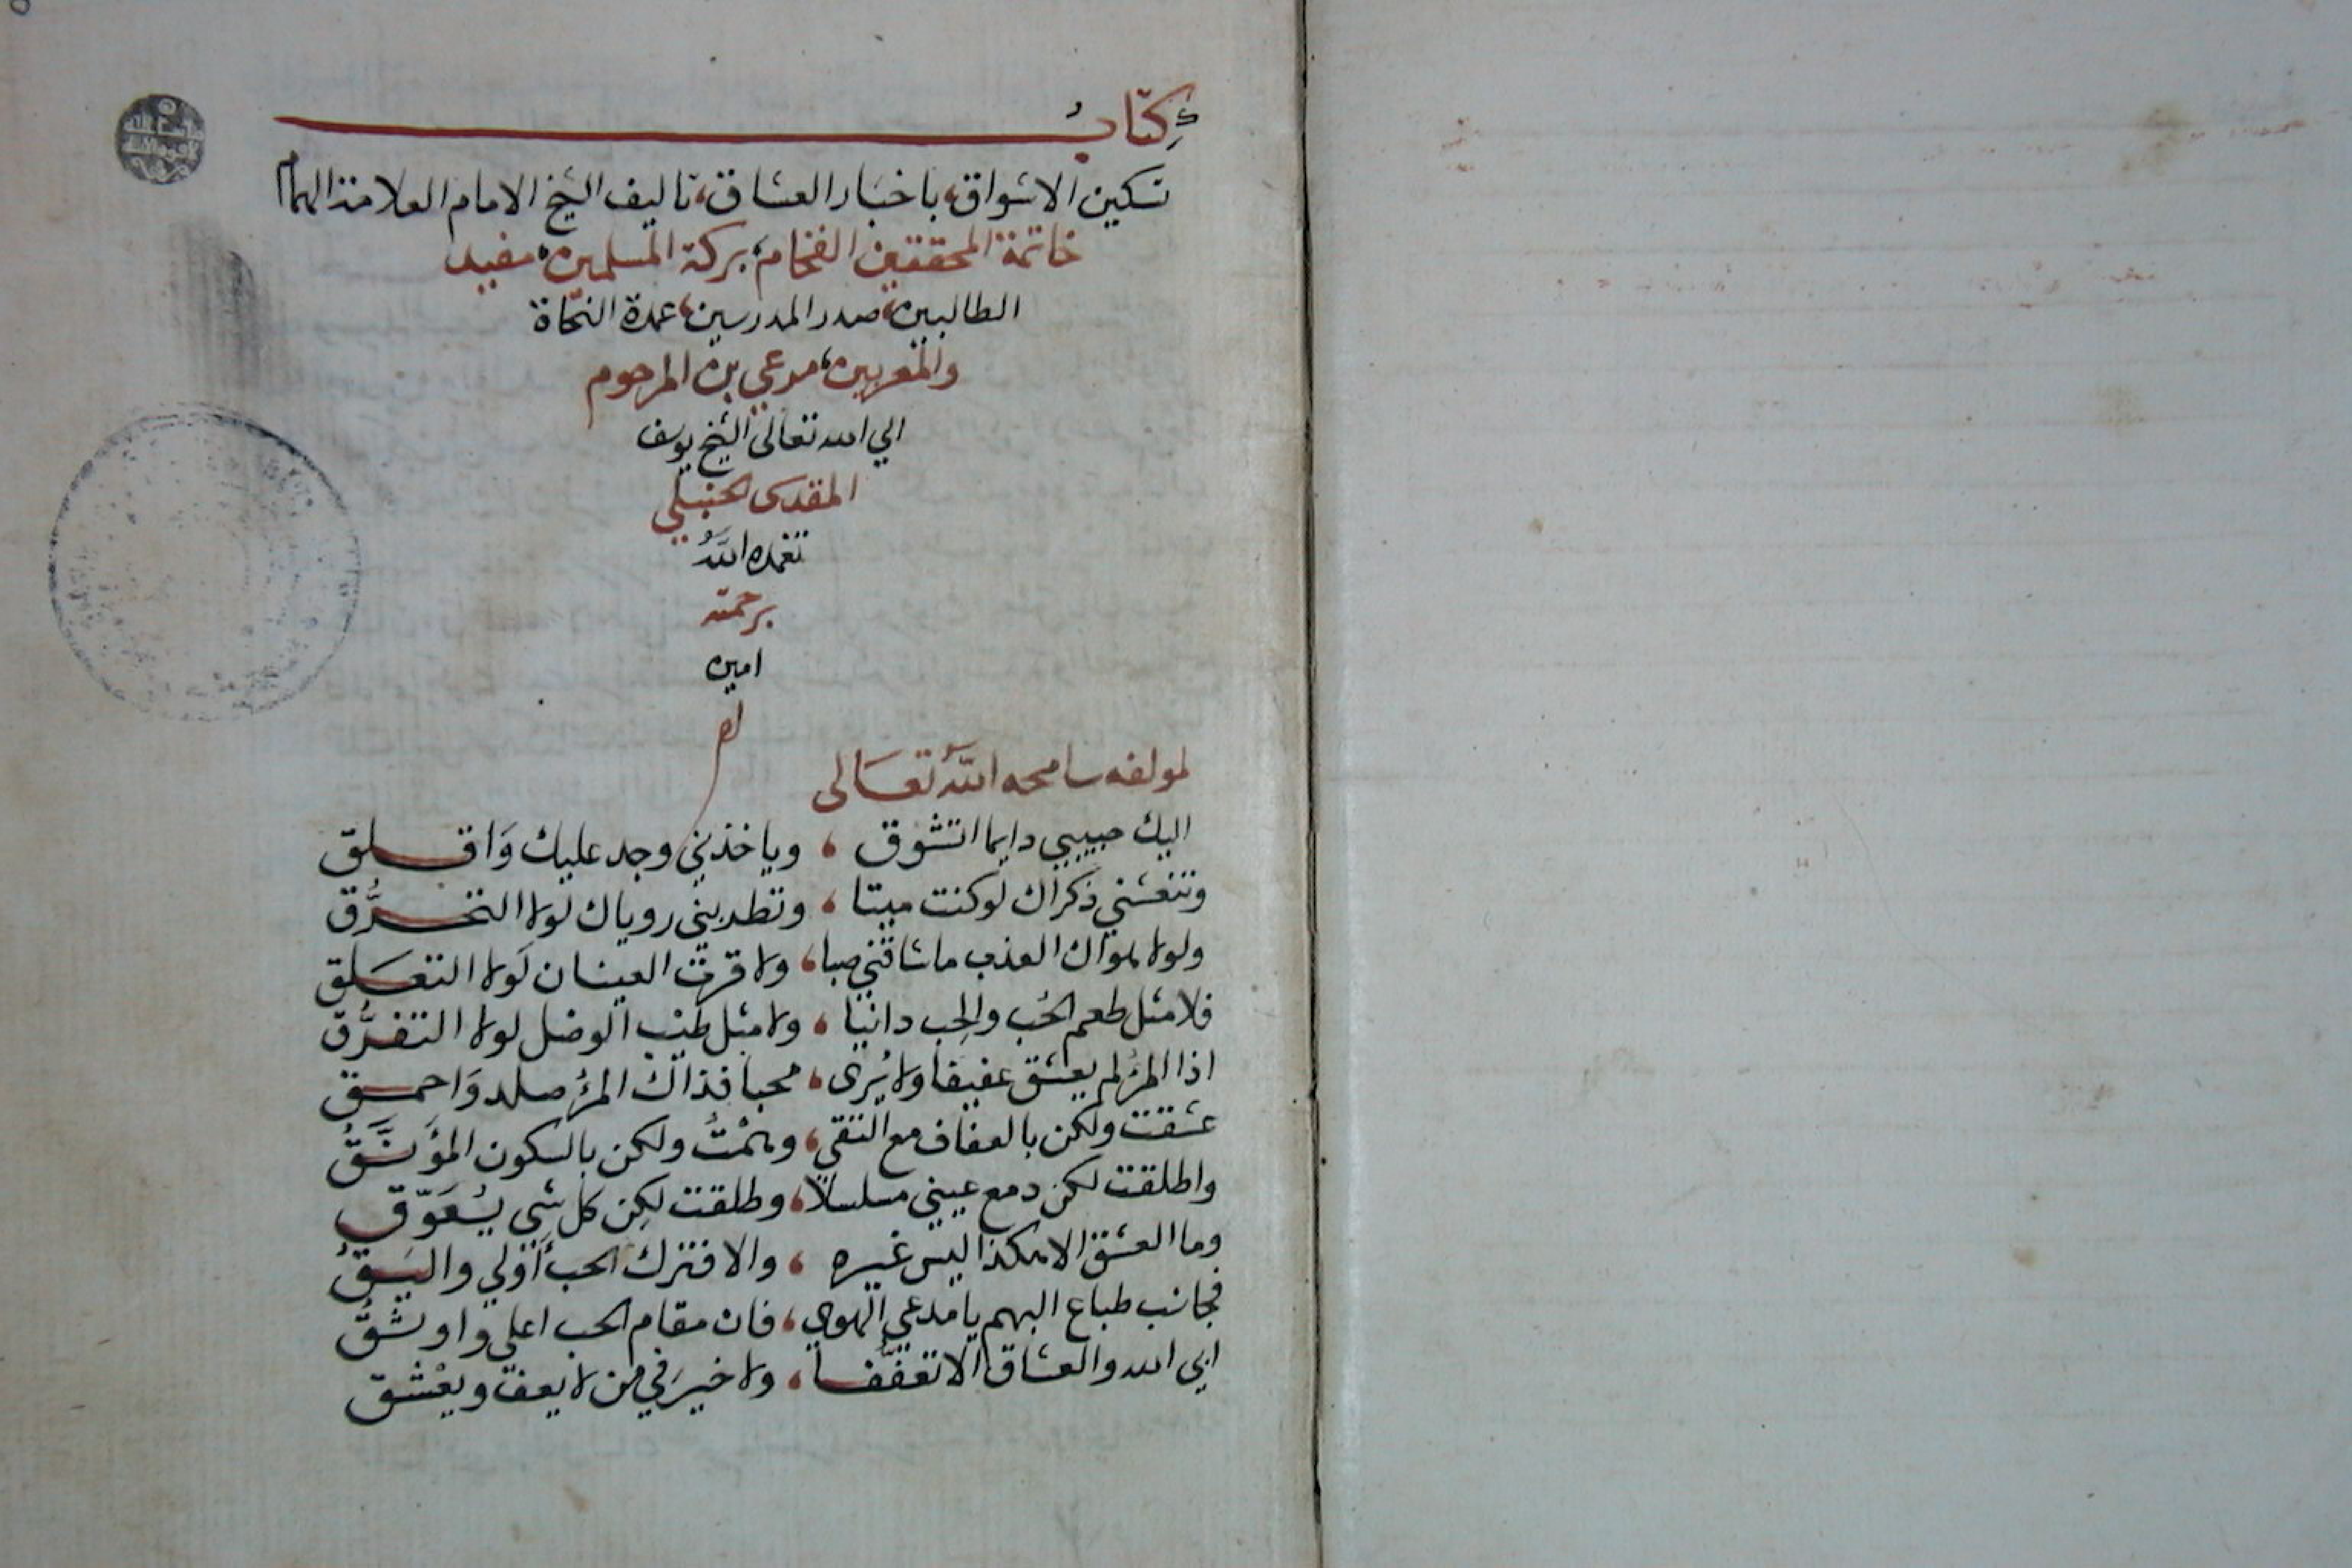 كتاب
تسكين الاشواق، باخبار العشاق، تاليف الشيخ الامام العلامة الهمام
خاتمة المحققين الفخام، بركة المسلمين، مفيد
الطالبين، صدر المدرسين، عمدة النحاة
والمعربين، مرعي بن المرحوم
الي الله تعالى الشيخ يوسف
المقدسى الحنبلي
تغمده اللّهُ
برحمته
امين
لمولفه سامحه اللّهُ تعَالى
اليك حبيبي دايما اتشوق ، وياخذني وجد عليك وَاقلق
وتنعشني ذكراك لو كنت ميتا ، وتطربني روياك لولا التحرُّق
ولولا هواك العذب ما شاقني صبا ، ولا قرت العينان لَولا التعَلق
فلا مثل طعم الحُب والحِب دانيا ، ولا مثل طيب الوصل لولا التفرُّق
اذا المرُ لم يعشق عفيفا ولا يُرى ، محبا فذاك المرُ صلد وَاحمق
عشقت ولكن بالعفاف مع التقي ، وهمْتُ ولكن بالسكون المؤنَّقُ
واطلقت لكن دمع عيني مسلسلا ، وطلقت لكِن كل شي يُعَوّق
وما العشق الا هكذا ليس غيره ، والا فترك الحب أَوْلي واليَقُ
فجانب طباع البهم يا مدعي الهوي ، فان مقام الحب اعلي واوشقُ
ابي الله والعشاق الا تعفّفا ، ولا خيرَ في من لا يعف ويعْشق